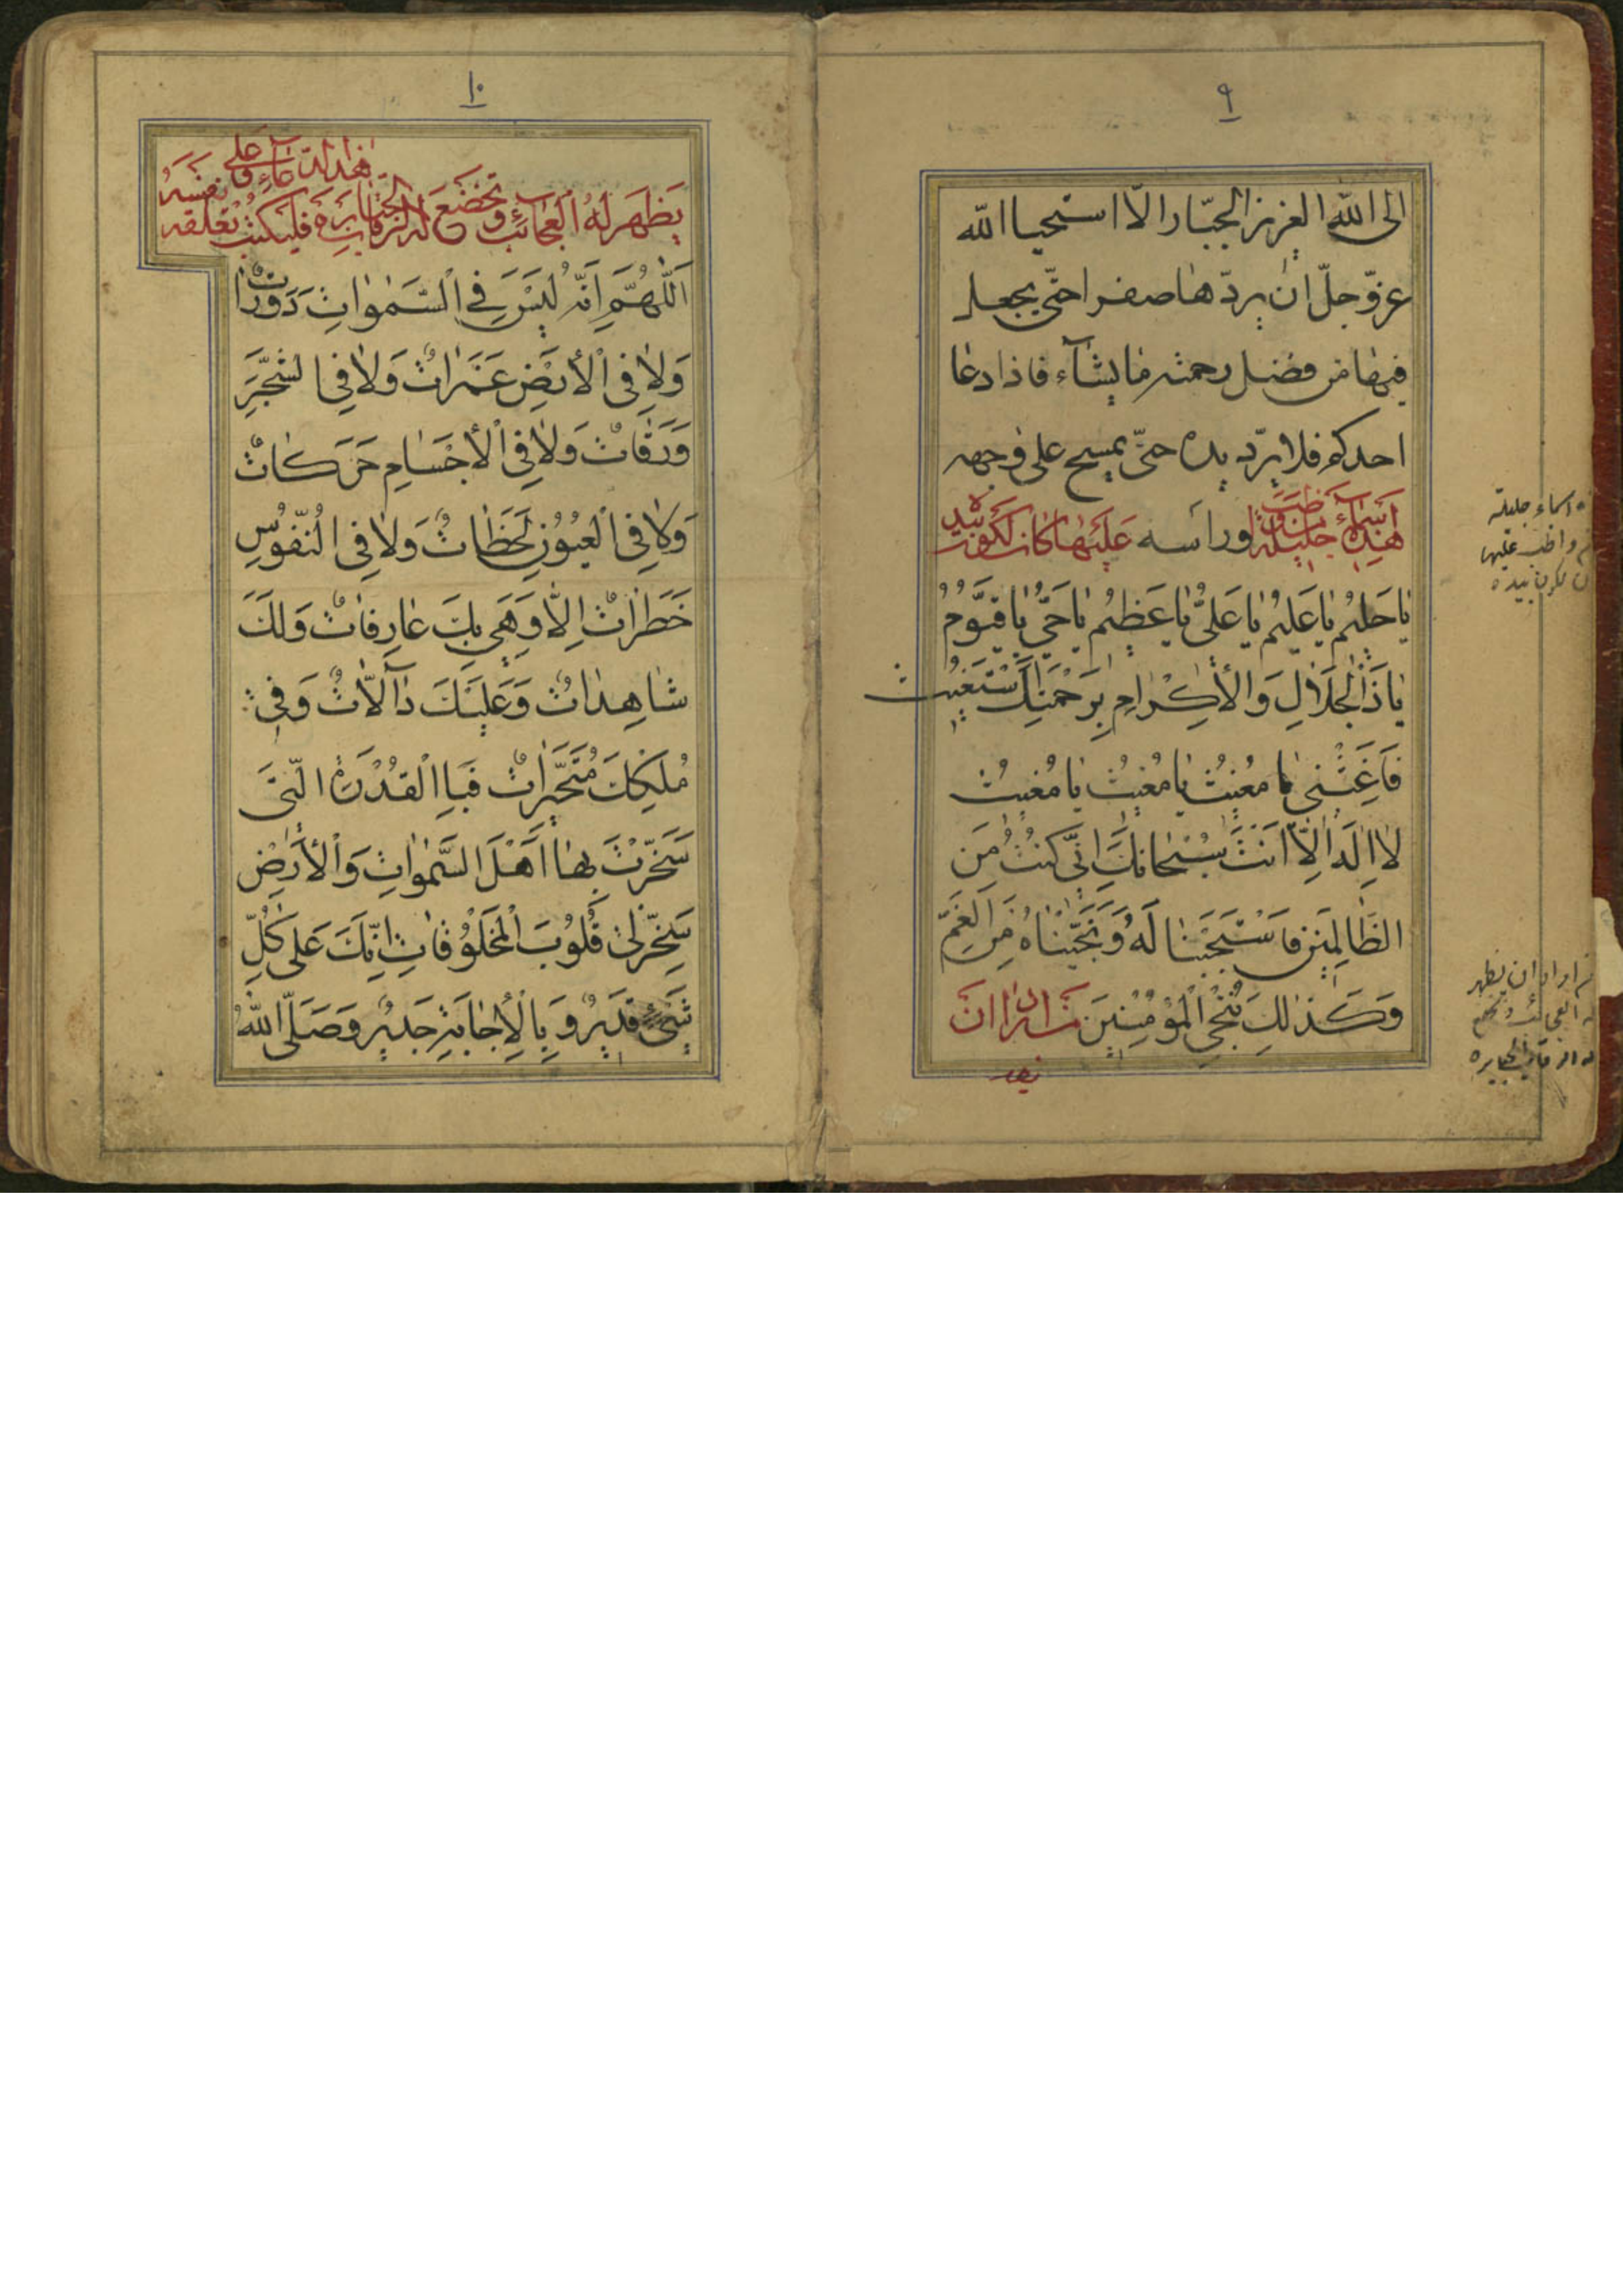 ٩
الى الله العزيز الجبّار الّا استحيا الله
عزّ و جلّ ان يردّها صفرا حتّى يجعل
فيها من فضل رحمته ما يشآء فاذا دعا
احدكم فلا يردّ يده حتّى يمسح على وجهه
وراسه هٰذِهِ اَسْمَآءٌ جَلِيلَةٌ مَنْ وَاظَبَ عَلَيْهَا كَانَ لَكُونُ بِيَدِه
يَا حَلِيمُ يَا عَلِيمُ يَا عَلِىُّ يَا عَظِيمُ يَا حَىُّ يَا قَيُّومُ
يَا ذَا الْجَلَالِ وَالْأِكْرَامِ بِرَحْمَتِكَ اَسْتَغِيثُ
فَاَغِثْنِى يَا مُغِيثُ يَا مُغِيثُ يَا مُغِيثُ
لَا اِلٰهَ اِلَّا اَنْتَ سُبْحَانَكَ اِنِّى كُنْتُ مِنَ
الظَّالِمِينَ فَاسْتَجَبْنَا لَهُ وَنَجَّيْنَاهُ مِنَ الْغَمِّ
وَكَذٰلِكَ نُنْجِى الْمُؤْمِنِينَ مَنْ اَرَادَ اَنْ
يظهر
اسماء جليلة
واظب عليها
بيده
اراد ان يظهر
العجائب و تخضع
له الرقاب الجبابره
١٠
يَظْهَرَ لَهُ الْعَجَائِبُ وَ تَخْضَعَ لَهُ الرِّقَابُ الْجَبَابِرَةِ فَلْيَكْتُبْ هٰذَا الدُّعَآءِ وَ تُعَلِّقُه عَلٰى نَفْسِه
اَللّٰهُمَّ اِنَّهُ لَيْسَ فِى السَّمٰوَاتِ دَوَرَاتٌ
وَلَا فِى الْأَرْضِ غَمَرَاتٌ وَلَا فِى الشَّجَرِ
وَرَقَاتٌ وَلَا فِى الْأَجْسَامِ حَرَكَاتٌ
وَلَا فِى الْعُيُونِ لَحَظَاتٌ وَلَا فِى النُّفُوسِ
خَطَرَاتٌ اِلَّا وَهِىَ بِكَ عَارِفَاتٌ وَلَكَ
شَاهِدَاتٌ وَعَلَيْكَ دَآلَّاتٌ وَفِى
مُلْكِكَ مُتَحَيِّرَاتٌ فَبِالْقُدْرَةِ الَّتِى
سَخَّرْتَ بِهَا اَهْلَ السَّمٰوَاتِ وَالْأَرْضِ
سَخِّرْلِى قُلُوبَ الْمَخْلُوقَاتِ اِنَّكَ عَلٰى كُلِّ
شَىْءٍ قَدِيرٌ وَ بِالْأِجَابَةِ جَدِيرٌ وَصَلَّى اللهُ